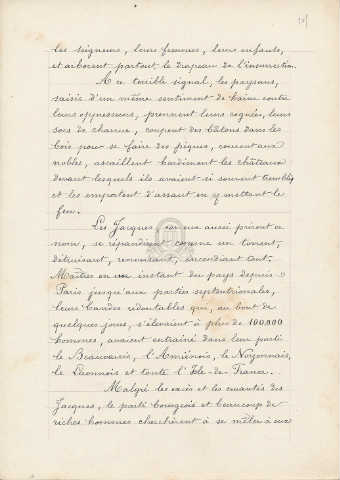 les seigneurs, leurs femmes, leurs enfants,
et arborent partout le drapeau de l'insurrection.
A ce terrible signal, les paysans,
saisis d'un même sentiment de haine contre
leurs oppresseurs, prennent leurs cognées, leurs
socs de charrue, coupent des bâtons dans les
bois pour se faire des piques, courent aux
nobles, assaillent hardiment les châteaux
devant lesquels ils avaient si souvent tremblé
et les emportent d'assaut en y mettant le
feu.
Les Jacques, car eux aussi prirent ce
nom, se répandirent comme un torrent,
détruisant, renversant, incendiant tout.
Maîtres en un instant du pays depuis
Paris jusqu'aux parties septentrionales,
leurs bandes redoutables qui, au bout de
quelques jours, s'élevaient à plus de 100.000
hommes, avaient entraîné dans leur parti
le Beauvaisis, l'Amiénois, le Noyonnais,
le Laonnois et toute l'Isle-de-France.
Malgré les excès et les cruautés des
Jacques, le parti bourgeois et beaucoup de
riches hommes cherchèrent à se mêler à eux